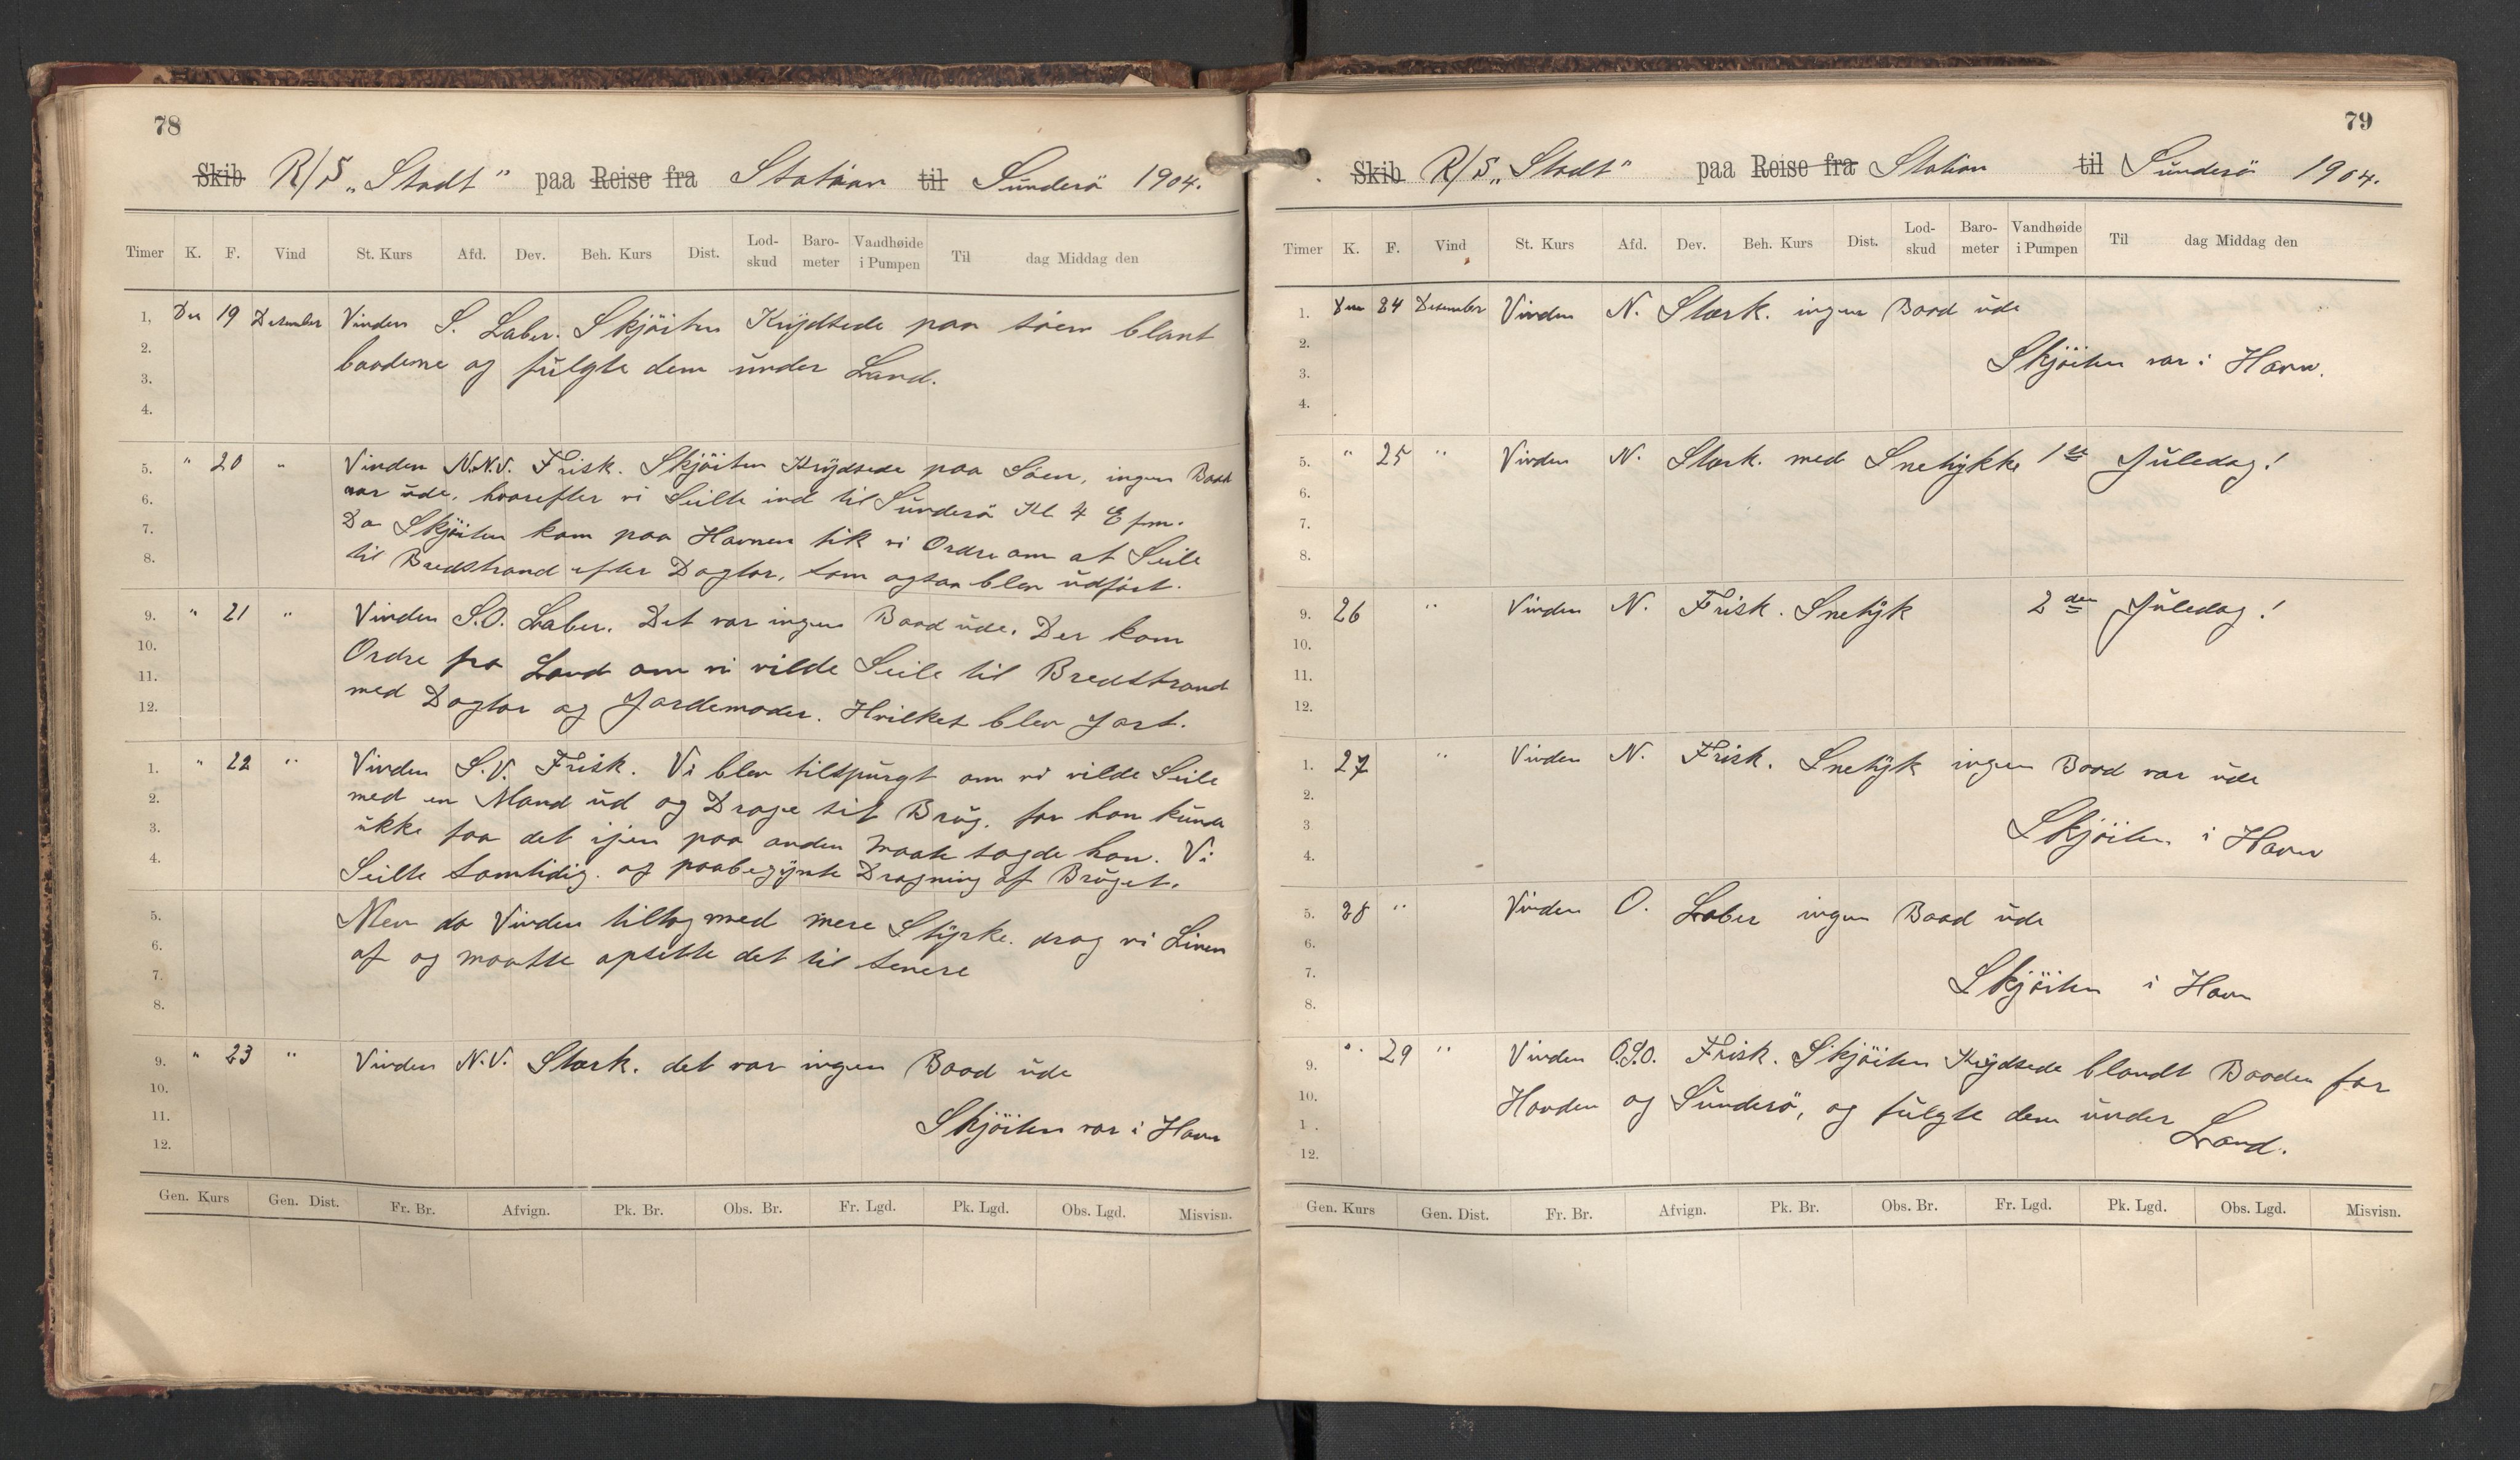 78
Skib R/S „Stadt" paa Reise fra Station til Sunderö 1904.
Timer K. F. Vind St. Kurs Afd. Dev. Beh. Kurs Dist. Lod-skud Baro-meter Vandhøide i Pumpen Til dag Middag den
1. Den 19 Desember Vinden S. Laber. Skjöiten Krÿdsede paa söen blant
2. baadene og fulgte dem under Land.
3.
4.
5. " 20 " Vinden N.N.V. Frisk. Skjöiten Krÿdsede paa Söen, ingen Baad
6. var ude, hvorefter vi Seilte ind til Sunderö Kl 4 Efm.
7. Da Skjöiten kom paa Havnen fik vi Ordre om at Seile
8. til Bredstrand efter Dogtor, som ogsaa blev udfört.
9. " 21 " Vinden S.O. Laber. Det var ingen Baad ude. Der kom
10. Ordre fra Land om vi vilde Seile til Bredstrand
11. med Dogtor og Jordemoder. Hvilket blev Jort.
12.
1. " 22 " Vinden S.V. Frisk. Vi blev tilspurgt om vi vilde Seile
2. med en Mand ud og Drage sit Brug. for han kunde
3. ikke faa det ijen paa anden Maate sagde han. Vi
4. Seilte samtidig. og paabegÿnte Dragning af Bruget.
5. Men da Vinden tiltog med mere Stÿrke. drog vi Linen
6. af og maatte opsette det til senere
7.
8.
9. " 23 " Vinden N.V. Stærk. det var ingen Baad ude
10.
11. Skjöiten var i Havn
12.
Gen. Kurs Gen. Dist. Fr. Br. Afvign. Pk. Br. Obs. Br. Fr. Lgd. Pk. Lgd. Obs. Lgd. Misvisn.
79
Skib R/S „Stadt" paa Reise fra Station til Sunderö 1904.
Timer K. F. Vind St. Kurs Afd. Dev. Beh. Kurs Dist. Lod-skud Baro-meter Vandhøide i Pumpen Til dag Middag den
1. Den 24 Desember Vinden N. Stærk. ingen Baad ude
2.
3. Skjöiten var i Havn.
4.
5. " 25 " Vinden N. Stærk. med Snetÿkke 1ste Juledag!
6.
7.
8.
9. 26 " Vinden N. Frisk. Snetÿk 2den Juledag!
10.
11.
12.
1. 27 " Vinden N. Frisk. Snetÿk ingen Baad var ude
2.
3. Skjöiten i Havn
4.
5. 28 " Vinden O. Laber ingen Baad ude
6.
7. Skjöiten i Havn
8.
9. " 29 " Vinden O.S.O. Frisk. Skjöiten Krÿdsede blandt Baaden for
10. Havden og Sunderö, og fulgte dem under
1 . Land.
12.
Gen. Kurs Gen. Dist. Fr. Br. Afvign. Pk. Br. Obs. Br. Fr. Lgd. Pk. Lgd. Obs. Lgd. Misvisn.